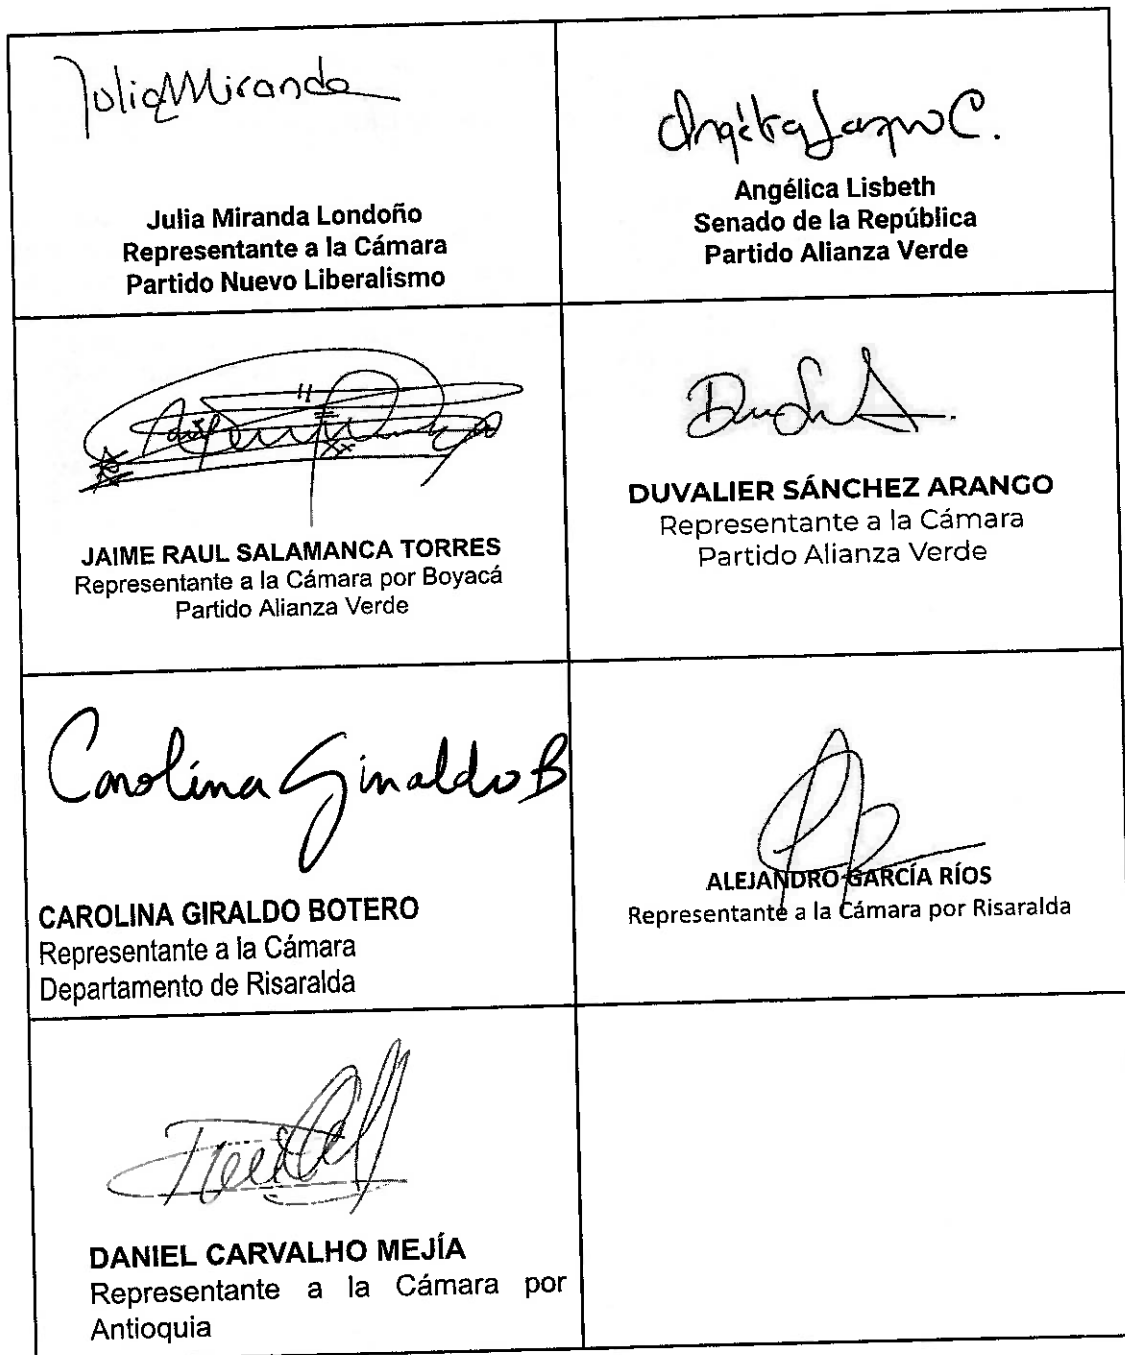 Julia Miranda
Julia Miranda Londoño
Representante a la Cámara
Partido Nuevo Liberalismo
Angélica Lozano C.
Angélica Lisbeth
Senado de la República
Partido Alianza Verde
JAIME RAUL SALAMANCA TORRES
Representante a la Cámara por Boyacá
Partido Alianza Verde
DUVALIER SÁNCHEZ ARANGO
Representante a la Cámara
Partido Alianza Verde
Carolina Giraldo B
CAROLINA GIRALDO BOTERO
Representante a la Cámara
Departamento de Risaralda
ALEJANDRO GARCÍA RÍOS
Representante a la Cámara por Risaralda
DANIEL CARVALHO MEJÍA
Representante a la Cámara por
Antioquia